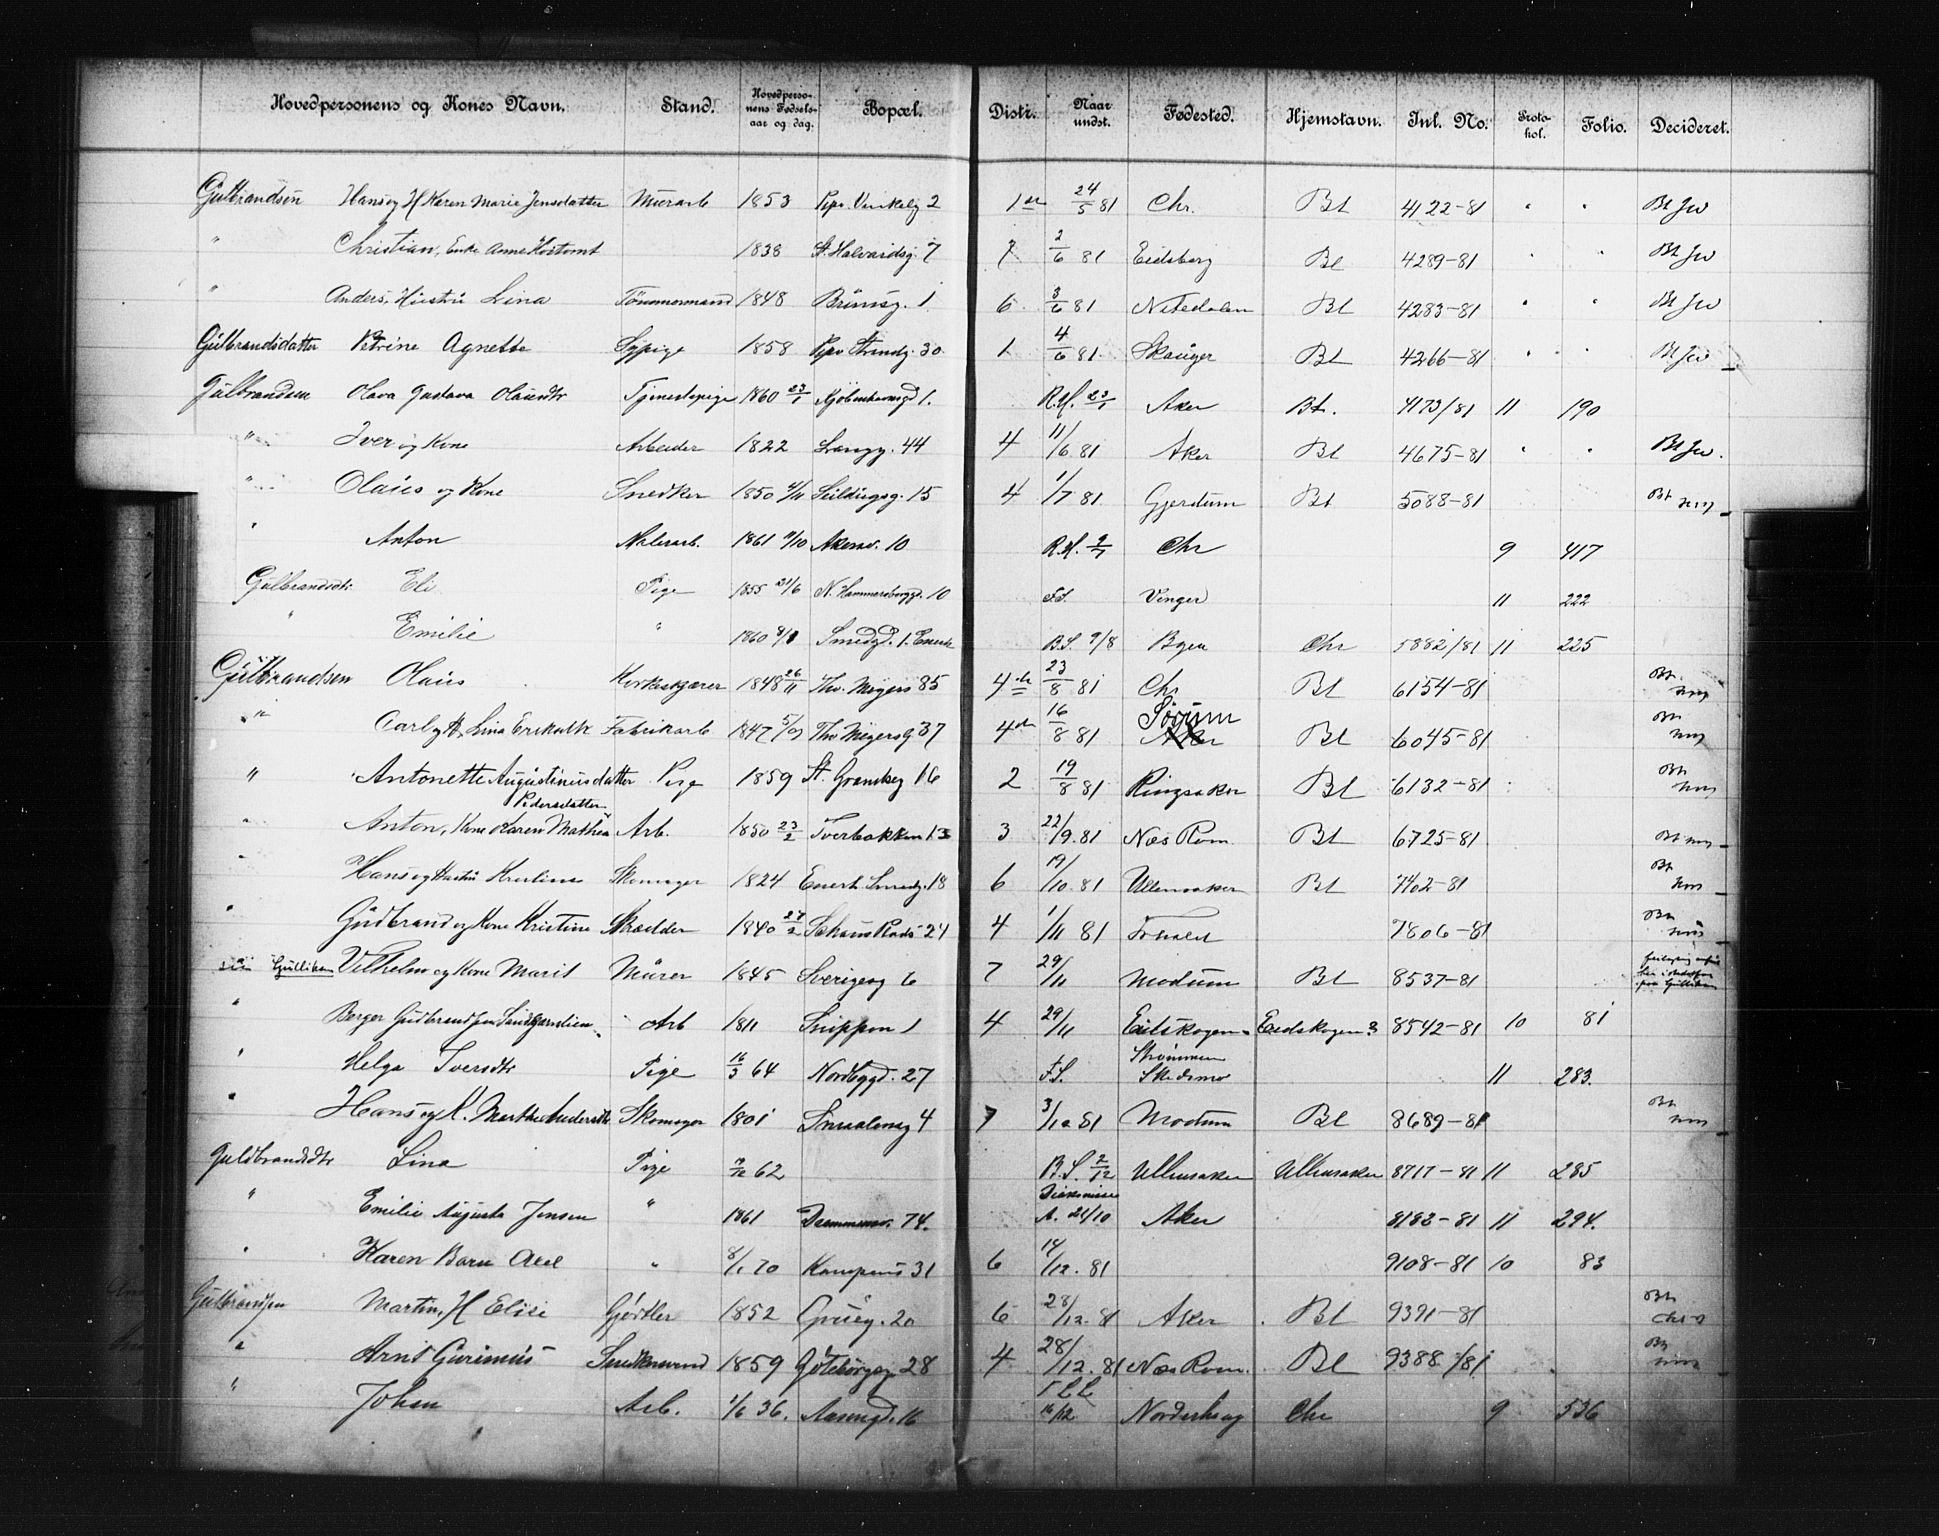 Hovedpersonens og Kones Navn. Stand. Hovedpersonens Fødselsaar og dag. Bopæl. Distr. Naar undst. Fødested. Hjemstavn. Jnl. No. Protokol. Folio. Decideret.
Gulbrandsen Hans og H Karen Marie Jensdatter Murarb 1853 2 1 24/5 81 Chr. Bt 4122-81 Bt Jw
" Christian, Enke Anne 1838 St. Halvardsg. 7 7 2/6 81 Eidsberg Bt 4289-81 Bt Jw
" Anders, Hustru Lina Tömmermand 1848 Brunsg. 1 6 3/6 81 Nitedalen Bt 4283-81 Bt Jw
Gulbrandsdatter Petrine Agnette Sypige 1858 Pipv Strandg. 30 1 4/6 81 Skauger Bt 4266-81 Bt Jw
Gulbrandsen Olava Gustava Olausdtr Tjenestepige 1860 23/1 Kjöbenhavnsgd 1. R.H. 23/1 Aker Bt. 4173/81 11 190
" Iver og Kone Arbeider 1822 Langg. 44 4 11/6 81 Aker Bt 4675-81 Bt Jw.
" Olaus og Kone Snedker 1850 4/11 15 4 1/7 81 Gjerdrum Bt 5088-81 Bt
" Anton Malerarb. 1861 11/10 Akersv. 10 R.H. 2/7 Chr 9 417
Gulbrandsdtr. Eli Pige 1855 21/6 N. Hammersborggd. 10 F.S. Vinger 11 222
" Emilie " 1860 8/8 Smedgd. 1. Enerh B.S. 9/8 Chr 5882/81 11 225
Gulbrandsen Olaus Korkskjærer 1848 26/11 Thv. Meyers 85 4 23/8 81 Chr Bt 6154-81 Bt
" Carl og H. Lina Eriksdtr Fabrikarb 1847 5/9 Thv Meyersg 37 4 16/8 81 Sörum Aker Bt 6045-81 Bt
" Antonette Augustinusdatter Pige 1859 St. Grændseg 16 2 19/8 81 Ringsaker Bt 6132-81 Bt
Pedersdatter
" Anton, Kone Karen Mathea Arb. 1850 23/2 Tverbakken 13 3 22/9. 81 Næs Rom. Bt 6725-81 Bt
" Hans og Hustru Skomager 1824 Enerh Smedg. 18 6 19/10. 81 Ullensaker Bt 7402-81 Bt
" Gudbrand og Kone Kristine Skrædder 1840 27/2 Schous Plads 24 4 1/11 81 7806-81 Bt
" Gulliksen Vilhelm og Kone Marit Murer 1845 Sverigesg 6 7 29/11 Modum Bt 8537-81
" Berger Gudbrandsen Arb 1811 Snippen 1 4 29/11 Eidskogen Eidskogen? 8542-81 10 81
" Helga Iversdtr Pige 16/3 64 Nordbygd. 27 F.S. Strömmen Skedsmo 11 283.
" Hans og K. Marthe Andersdtr Skomager 1801 Smaalensg 4 7 3/12 81 Modum Bt 8689-81 Bt
Guldbrandsdtr Lina Pige 62 B.S. 2/12 Ullensaker Ullensaker 8717-81 11 285
" Emilie Augusta Jensen " 1861 Drammensv. 74. 21/10 Aker 8183-81 11 294.
" Karen Barn Axel " 8/1 70 Kampens 31 6 14/12. 81 9108-81 10 83
Gulbrandsen Martin, H Elise Gjørtler 1852 Grüneg. 20 6 28/12. 81 Aker Bt 9391-81 Bt
" Arnt Gurimus Snedkersvend 1859 Göteborgsg. 28 4 28/12. 81 Næs Rom. Bt 9388/81 Bt
" Johan Arb. 1/6 36. Aasengd. 16 16/12 Norderhaug Chr 9 536